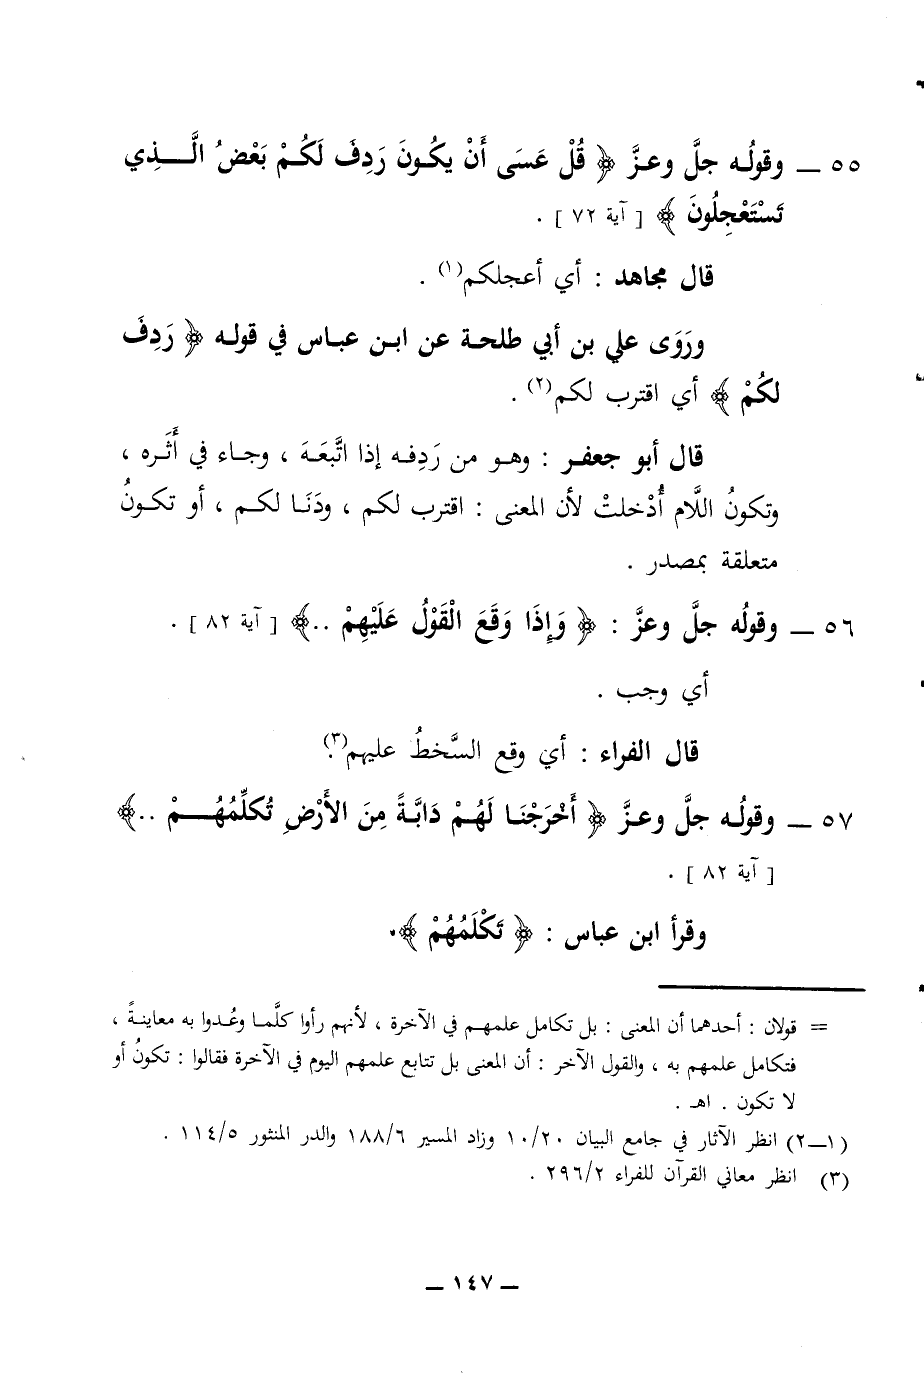 ٥٥ ــ وقولُـه جلَّ وعـزَّ ﴿ قُلْ عَسَى أَنْ يكُـونَ رَدِفَ لَكُـمْ بَعْضُ الَّـــذِي
تَسْتَعْجِلُونَ ﴾ [ آية ٧٢ ] .
قال مجاهد : أي أعجلكم(١) .
ورَوَى علي بن أبي طلحـة عن ابـن عبـاس في قولـه ﴿ رَدِفَ
لكُمْ ﴾ أي اقترب لكم(٢) .
قال أبو جعفـر : وهـو من رَدِفـه إذا اتَّبعَـهَ ، وجـاء في أَثَـره ،
وتكونُ اللَّام أُدْخلتْ لأن المعنى : اقترب لكم ، ودَنَـا لكـم ، أو تكـونُ
متعلقة بمصدر .
٥٦ ــ وقولُه جلَّ وعزَّ : ﴿ وَإِذَا وَقَعَ الْقَوْلُ عَلَيْهِمْ ..﴾ [ آية ٨٢ ] .
أي وجب .
قال الفراء : أي وقع السَّخطُ عليهم(٣).
٥٧ ــ وقولُـه جلَّ وعـزَّ ﴿ أَخْرَجْنَـا لَهُـمْ دَابَّـةً مِنَ الأَرْضِ تُكَلِّمُهُـــمْ ..﴾
[ آية ٨٢ ] .
وقرأ ابن عباس : ﴿ تَكْلَمُهُمْ ﴾.
= قولان : أحدهما أن المعنى : بل تكامل علمهـم في الآخرة ، لأنهم رأوا كلَّمـا وعُـدوا به معاينـةً ،
فتكامل علمهم به ، والقول الآخر : أن المعنى بل تتابع علمهم اليوم في الآخرة فقالوا : تكونُ أو
لا تكون . اهـ .
(١ــ٢) انظر الآثار في جامع البيان ١٠/٢٠ وزاد المسير ١٨٨/٦ والدر المنثور ١١٤/٥ .
(٣) انظر معاني القرآن للفراء ٢٩٦/٢ .
ــ ١٤٧ ــ